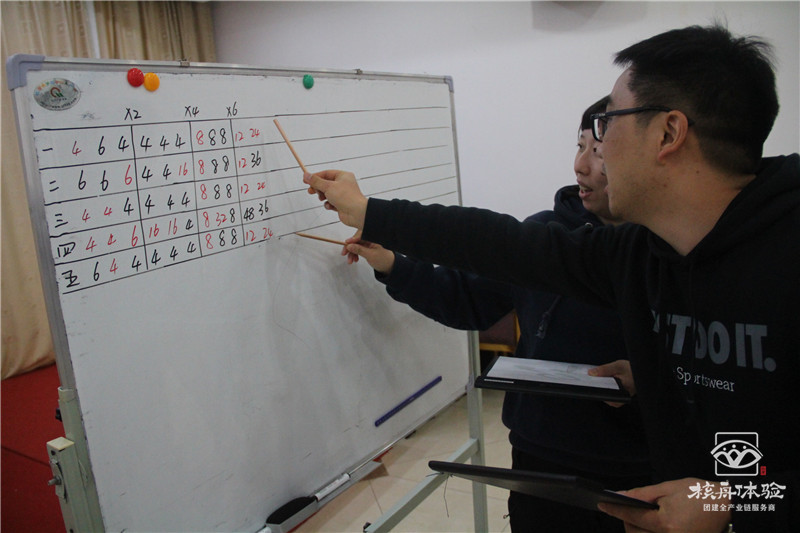 X2 X4 X6
一 4 6 4 4 4 4 8 8 8 12 24
二 6 6 6 4 4 16 8 8 8 12 36
三 4 4 4 4 4 4 8 8 8 12 24
四 4 4 6 16 16 4 8 32 8 48 36
五 6 4 4 4 4 4 8 8 8 12 24
DO IT.
Sportswear
核舟体验
团建全产业链服务商